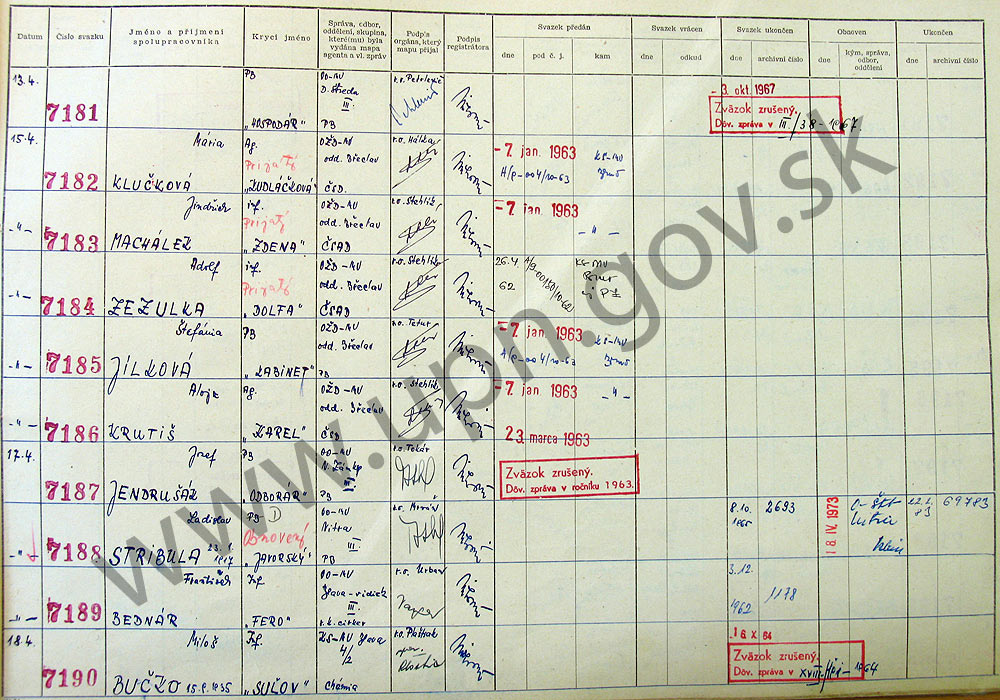 Datum
Číslo svazku
Jméno a příjmení
spolupracovníka
Krycí jméno
Správa, odbor,
oddělení, skupina,
které(mu) byla
vydána mapa
agenta a vl. zpráv
Podpis
orgána, který
mapu přijal
Podpis
registrátora
Svazek předán
dne
pod č. j.
kam
Svazek vrácen
dne
odkud
Svazek ukončen
dne
archivní číslo
Obnoven
dne
kým, správa,
odbor,
oddělení
Ukončen
dne
archivní číslo
13.4.
7181
PB
„HOSPODÁŘ“
OO-AV
D. Streda
III.
PB
- 3. okt. 1967
Zväzok zrušený.
Dôv. zpráva v III/38-1967.
15.4.
7182
Mária
KLUČKOVÁ
Ag.
Prijatý
„KUDLÁČKOVÁ“
OŽD-AV
odd. Břeclav
ČSD.
- 7. jan. 1963
A/p-004/10-63
KS-MV
Brno
-„-
7183
Jindřich
MACHÁLEK
inf.
Prijatý
„ZDENA“
OŽD-AV
odd. Břeclav
ČSAD
r.o. Stehlík,
- 7. jan. 1963
-„-
-„-
7184
Adolf
ZEZULKA
inf.
Prijatý
„DOLFA“
OŽD-AV
odd. Břeclav
ČSAD
r.o. Stehlík
26.4
62
KS MV
-„-
7185
Štefánia
JÍLKOVÁ
PB
„KABINET“
OŽD-AV
odd. Břeclav
PB
- 7. jan. 1963
A/p-004/10-63
KS-MV
Brno
-„-
7186
Alojz
KRUTIŠ
Ag.
„KAREL“
OŽD-AV
odd. Břeclav
ČSD
r.o. Stehlík
- 7. jan. 1963
-„-
23. marca 1963
17.4.
7187
Jozef
JENDRUŠÁK
PB
„ODBORÁR“
OO-AV
N. Zámky
III
PB
Zväzok zrušený.
Dôv. zpráva v ročníku 1963.
-„-
7188
Ladislav
STRIBULA
1917
PB
Obnovený
„JAVORSKÝ“
OO-AV
Nitra
III
PB
8.10.
2693
18 IV. 1973
83
69783
-„-
7189
František
BEDNÁR
Inf
„FERO“
OO-AV
III.
r.o. Urban
3.12.
1962
1178
18.4.
7190
Miloš
BUČKO 15.9.1935
Inf.
„SUĽOV“
KS-AV
4/2
Chémia
16 X 64
Zväzok zrušený.
Dôv. zpráva v XVIII-1964
www.upn.gov.sk